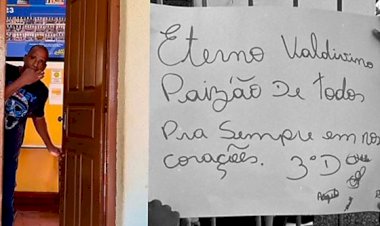 Eterno Valdivino
Paizão De todos
Pra Sempre em nos
corações. 3°D